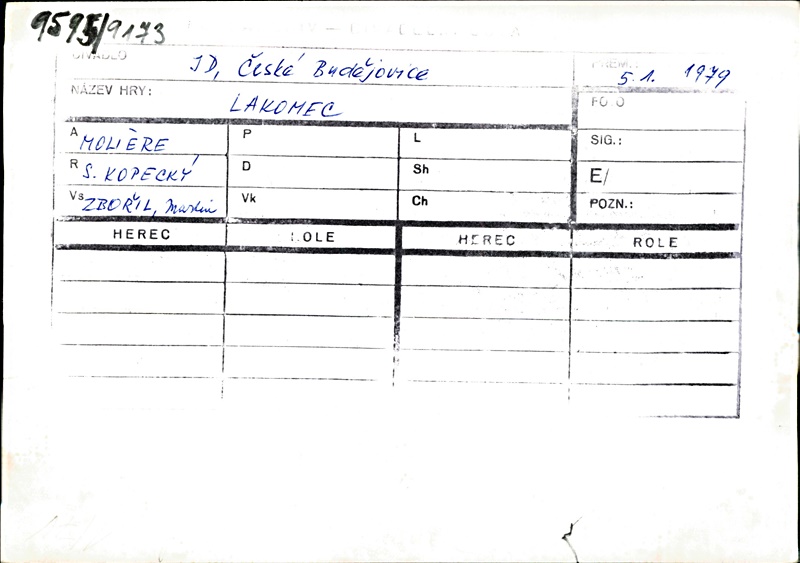 9595/9173
DIVADLO JD, České Budějovice PREM.: 5.1. 1979
NÁZEV HRY: LAKOMEC FOTO
A MOLIÈRE P L SIG.:
R S. KOPECKÝ D Sh E/
Vs ZBOŘIL, Martin Vk Ch POZN.:
HEREC ROLE HEREC ROLE